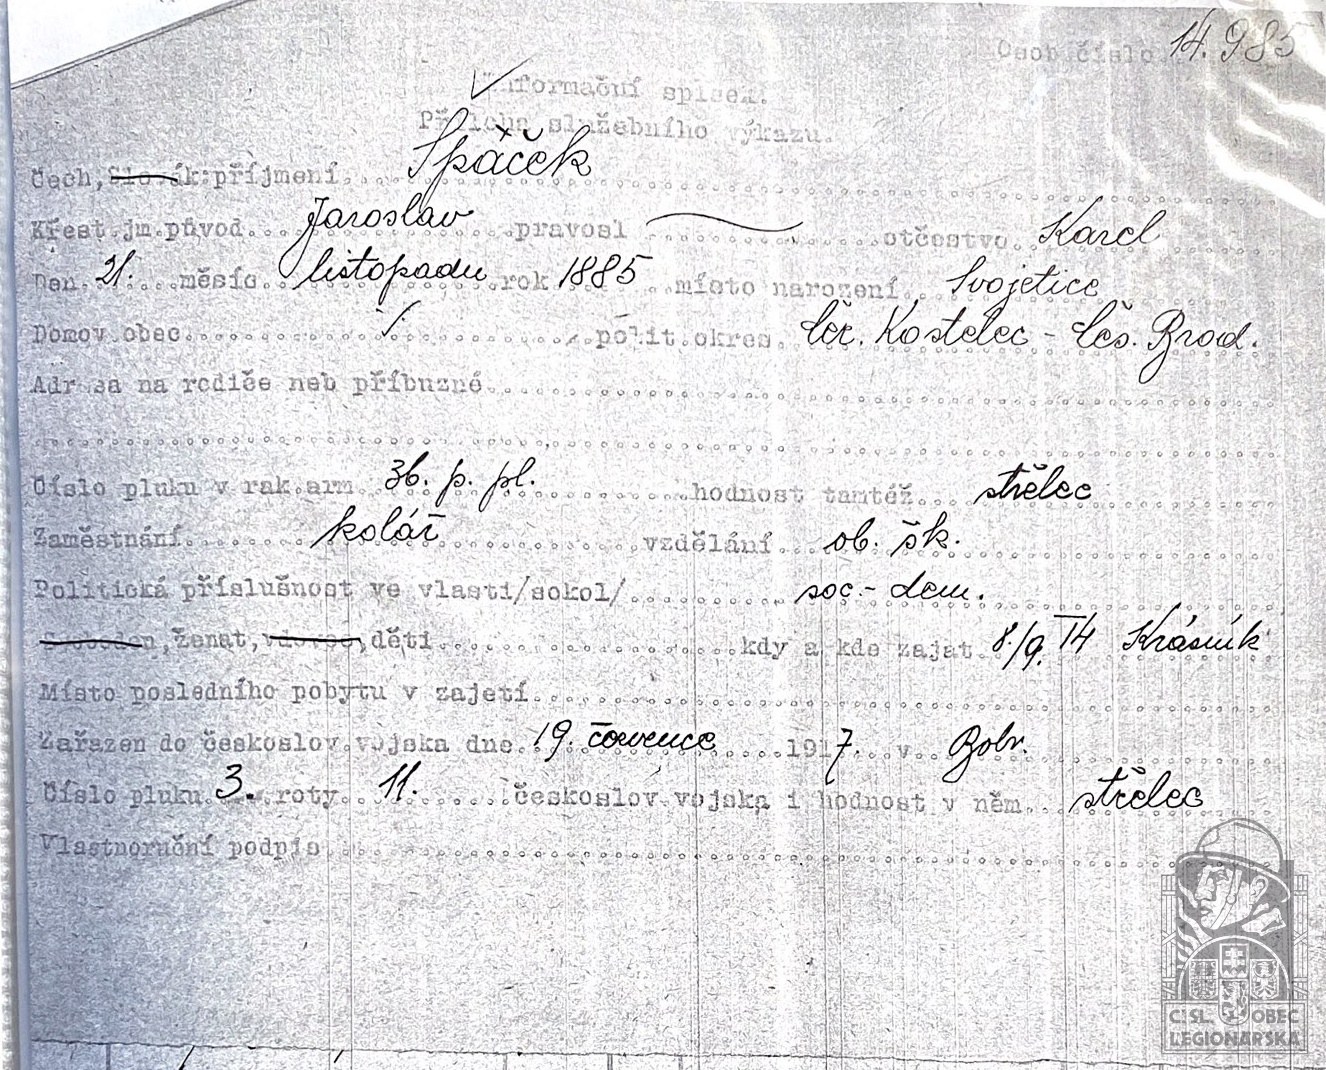 Osob.číslo 14.985
Informační spisek.
Příloha služebního výkazu.
Čech, Slovák:příjmení.... Špaček
Křest.jm.původ... Jaroslav pravosl otčestvo. Karel
Den. 21. měsíc listopadu rok 1885 místo narození. Svojetice
Domov.obec polit.okres. Čer. Kostelec - Čes. Brod.
Adresa na rodiče neb příbuzné
Číslo pluku v rak.arm. 36. p. pl. hodnost tamtéž... střelec
Zaměstnání. kolář vzdělání... ob. šk.
Politická příslušnost ve vlasti/sokol/ soc.-dem.
Svoboden, ženat, vdovec, děti kdy a kde zajat. 8./9. 14 Krásník
Místo posledního pobytu v zajetí
Zařazen do českoslov.vojska dne. 19. července 1917. v Bobr.
Číslo pluku 3. roty 11. českoslov.vojska i hodnost v něm... střelec
Vlastnoruční podpis
ČSL. OBEC
LEGIONÁŘSKÁ